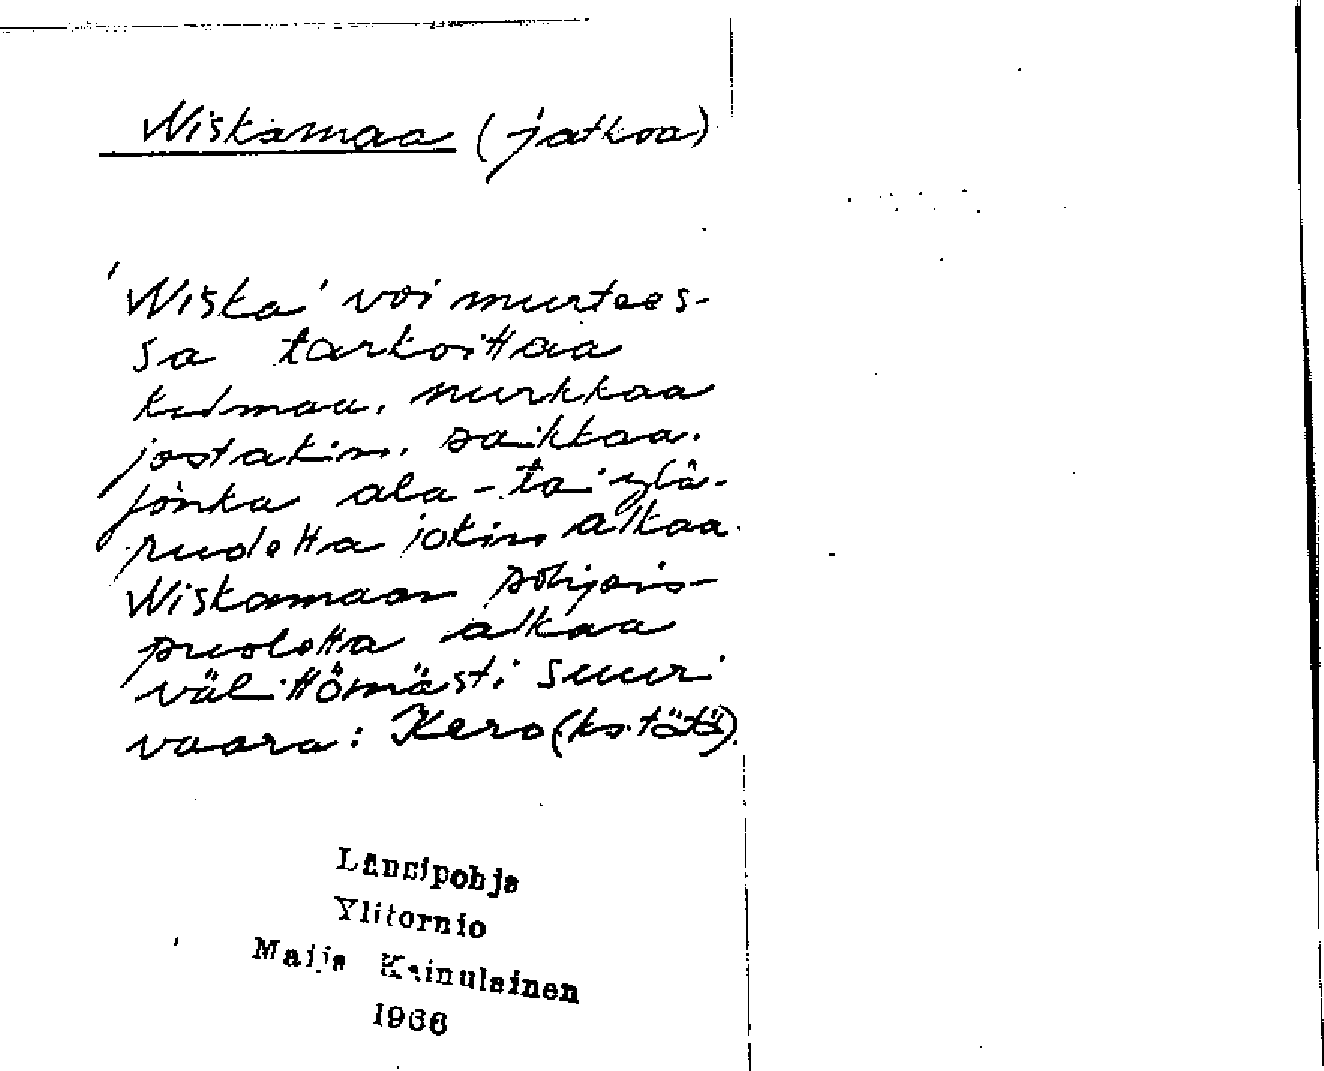 Niskamaa (jatkoa)
'Niska' voi murtees-
sa tarkoittaa
kulmaa, nurkkaa
jostakin, paikkaa,
jonka ala- tai ylä-
puolelta jokin alkaa.
Niskamaan pohjois-
puolelta alkaa
välittömästi suuri
vaara: Kero (ks. tätä).
Länsipohja
Ylitornio
Maija Kainulainen
1966